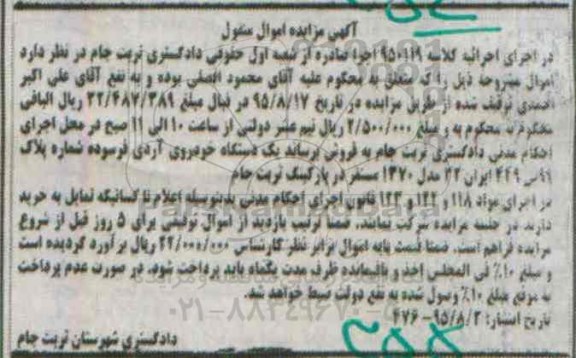 آگهی مزایده اموال منقول
در اجرای اجرائیه کلاسه ۹۵۰۱۱۹ اجرا صادره از شعبه اول حقوقی دادگستری تربت جام در نظر دارد
اموال مشروحه ذیل را که متعلق به محکوم علیه آقای محمود افضلی بوده و به نفع آقای علی اکبر
احمدی توقیف شده از طریق مزایده در تاریخ ۹۵/۸/۱۷ در قبال مبلغ ۳۲/۴۸۷/۳۸۹ ریال الباقی
محکوم به محکوم به و مبلغ ۲/۵۰۰/۰۰۰ ریال نیم عشر دولتی از ساعت ۱۰ الی ۱۱ صبح در محل اجرای
احکام مدنی دادگستری تربت جام به فروش برساند یک دستگاه خودروی آردی فرسوده شماره پلاک
۹۹س۴۴۹ ایران ۳۲ مدل ۱۳۷۰ مستقر در پارکینگ تربت جام
در اجرای مواد ۱۱۸ و ۱۲۲ و ۱۲۳ قانون اجرای احکام مدنی بدینوسیله اعلام تا کسانیکه تمایل به خرید
دارند در جلسه مزایده شرکت نمایند. ضمنا ترتیب بازدید از اموال توقیفی برای ۵ روز قبل از شروع
مزایده فراهم است. ضمنا قیمت پایه اموال برابر نظر کارشناس ۲۲/۰۰۰/۰۰۰ ریال برآورد گردیده است
و مبلغ ۱۰٪ فی المجلس اخذ و باقیمانده ظرف مدت یکماه باید پرداخت شود. در صورت عدم پرداخت
به موقع مبلغ ۱۰٪ وصول شده به نفع دولت ضبط خواهد شد.
تاریخ انتشار: ۹۵/۸/۲- ۴۷۶
دادگستری شهرستان تربت جام
۰۲۱-۸۸۳۴۹۶۷۰-۵